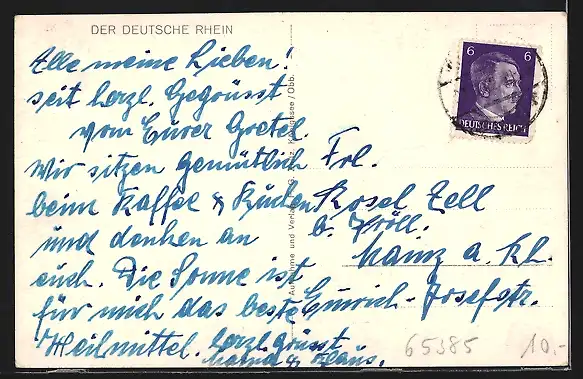 DER DEUTSCHE RHEIN
Alle meine Lieben!
seid herzl. Gegrüsst
vom Eurer Gretel.
Wir sitzen gemütlich
beim Kaffee & Kuchen
und denken an
euch. Die Sonne ist
für mich das beste
Heilmittel. herzl. grüsst
& Hans.
Aufnahme und Verlag
Königssee/Obb.
6 6
DEUTSCHES REICH
Frl.
Rosel Zell
b.
Mainz a. Rh.
Emrich-Josefstr.
65385 10.-